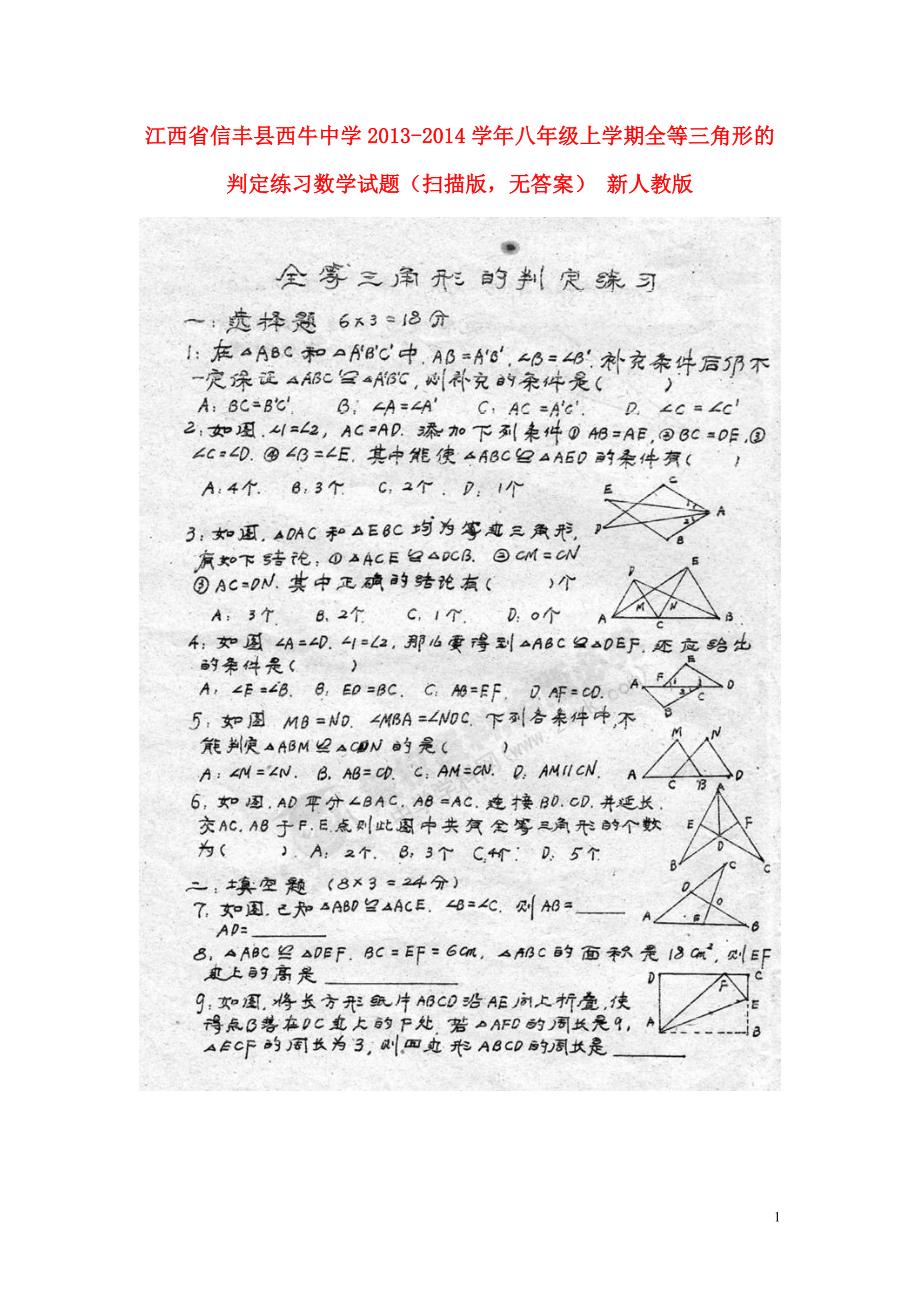 江西省信丰县西牛中学2013-2014学年八年级上学期全等三角形的
判定练习数学试题（扫描版，无答案） 新人教版
全等三角形的判定练习
一：选择题 6×3=18分
1：在△ABC和△A'B'C'中.AB=A'B'.∠B=∠B'.补充条件后仍不
一定保证△ABC≌△A'B'C,则补充的条件是( )
A：BC=B'C'. B：∠A=∠A' C：AC=A'C'. D. ∠C=∠C'
2：如图.∠1=∠2, AC=AD. 添加下列条件① AB=AE,②BC=DE,③
∠C=∠D.④∠B=∠E. 其中能使△ABC≌△AED的条件有( )
A：4个. B：3个 C：2个. D：1个
E C 1 2 A D B
3：如图,△DAC和△EBC均为等边三角形,
有如下结论：①△ACE≌△DCB. ②CM=CN
③AC=DN. 其中正确的结论有( )个
A：3个. B、2个. C：1个. D：0个
D E M N A C B
4：如图∠A=∠D.∠1=∠2,那么要得到△ABC≌△DEF.还应给出
的条件是( )
A：∠E=∠B. B：ED=BC. C：AB=EF. D. AF=CD.
E A F 1 2 C D B
5：如图 MB=ND. ∠MBA=∠NDC. 下列各条件中,不
能判定△ABM≌△CDN的是( )
A：∠M=∠N. B. AB=CD. C：AM=CN. D：AM∥CN.
M N A C B D
6：如图.AD平分∠BAC. AB=AC. 连接BD.CD.并延长.
交AC.AB于F.E.点则此图中共有全等三角形的个数
为( ). A：2个. B：3个 C：4个 D：5个
A E F D B C
二：填空题 (8×3=24分)
7：如图.已知△ABD≌△ACE. ∠B=∠C. 则AB=_____
AD=_______
C D O A E B
8、△ABC≌△DEF. BC=EF=6cm, △ABC的面积是18cm²,则EF
边上的高是_________
9：如图,将长方形纸片ABCD沿AE向上折叠,使
得点B落在DC边上的F处.若△AFD的周长是9,
△ECF的周长为3,则四边形ABCD的周长是_____
D F C E A B
1